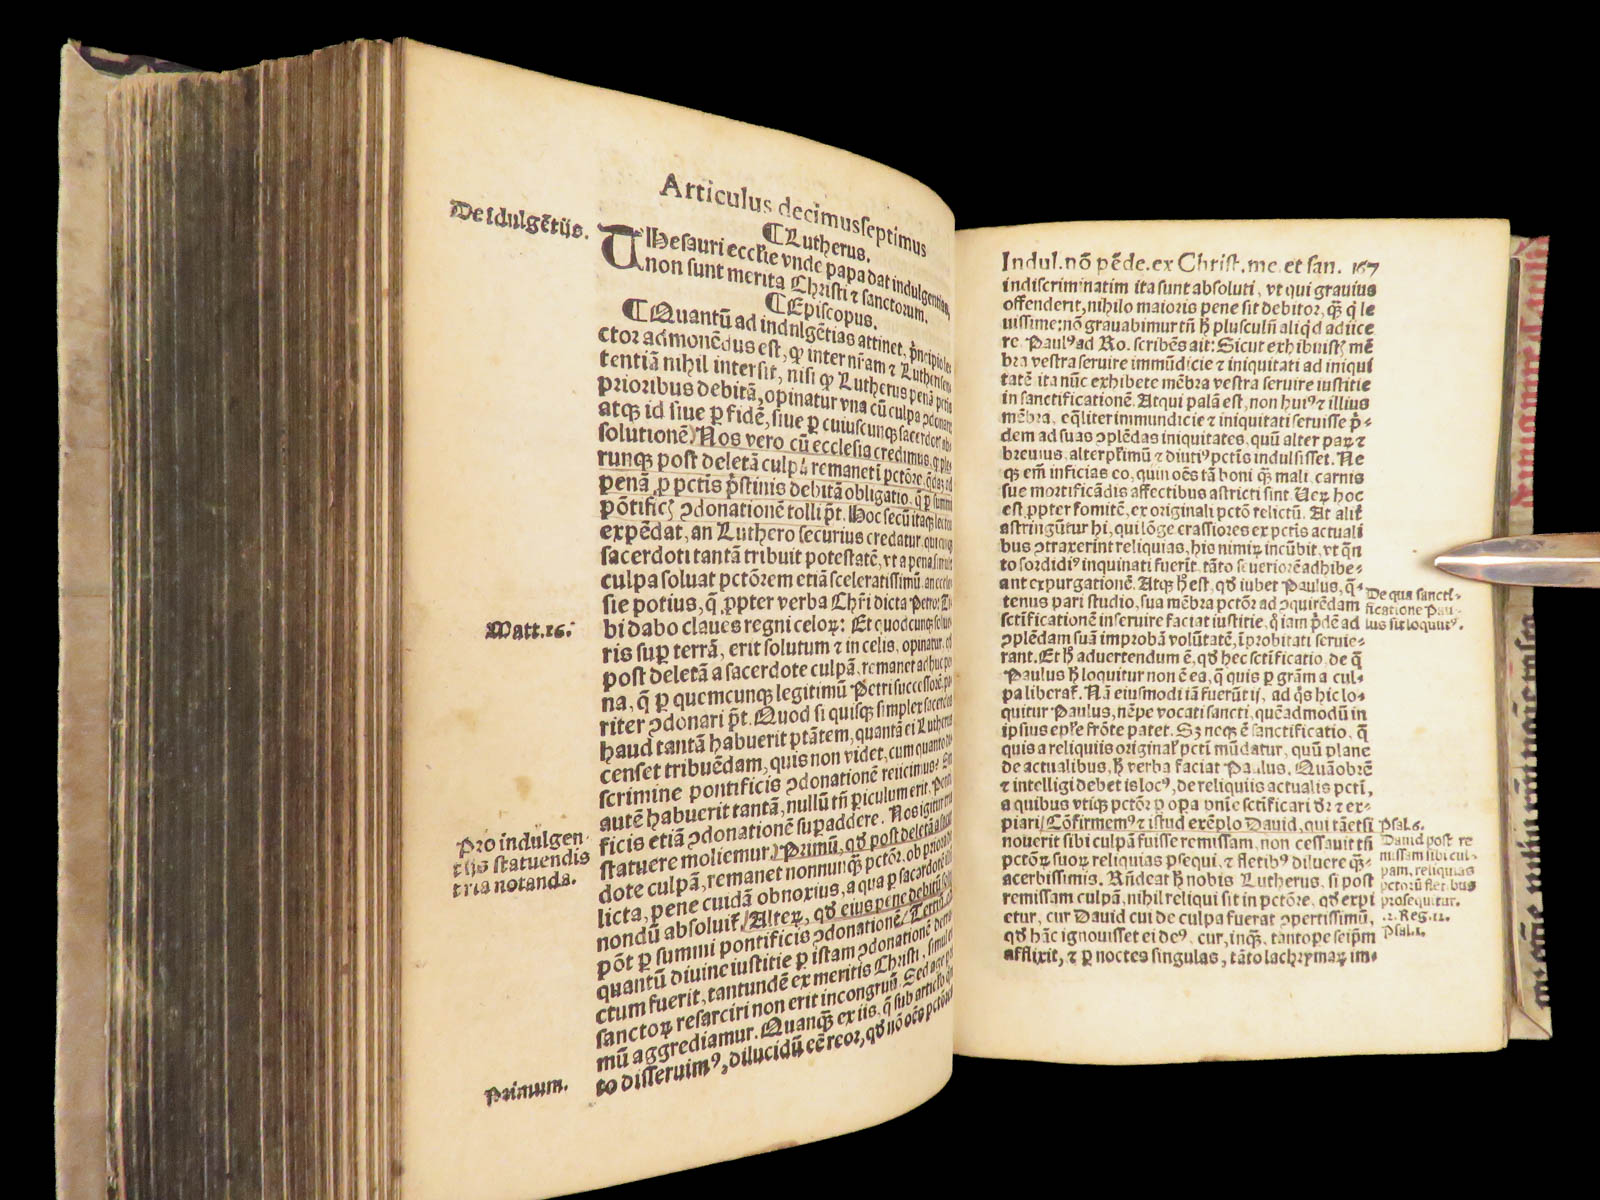 Articulus decimusseptimus
De īdulgētijs.
⸿Lutherus.
THesauri eccl'ie vnde papa dat indulgentias,
non sunt merita Christi ⁊ sanctorum.
⸿Episcopus.
⸿Quantū ad indulgētias attinet, p̄ncipio le
ctor admonēdus est, ꝙ inter nr̄am ⁊ Lutheri sen
tentiā nihil intersit, nisi ꝙ Lutherus penā pctis
prioribus debitā, opinatur vna cū culpa ꝯdonari
atqꝫ id siue ꝑ fidē, siue ꝑ cuiuscunqꝫ sacerdot' ab
solutionē/ Nos vero cū ecclesia credimus, ꝙ ple
runqꝫ post deletā culpā remanet ī pctōre, q̄dā ad
penā, ꝓ pctis p̄stinis debitā obligatio, q̄ ꝑ summi
pōtificꝭ ꝯdonationē tolli pt̄. Hoc secū itaqꝫ lector
expēdat, an Luthero securius credatur, qui cuiqꝫ
sacerdoti tantā tribuit potestatē, vt a pena simul ⁊
culpa soluat pctōrem etiā sceleratissimū, an eccle
sie potius, q̄ ꝓpter verba Chr̄i dicta Petro: Ti
Matt.16.
bi dabo claues regni celoꝝ: Et quodcunqꝫ solue
ris suꝑ terrā, erit solutum ⁊ in celis, opinatur, ꝙ
post deletā a sacerdote culpā, remanet adhuc pe
na, q̄ ꝑ quemcunqꝫ legitimū Petri successorē, pa
riter ꝯdonari pt̄. Quod si quisqꝫ simplex sacerdos
haud tantā habuerit ptātem, quantā ei Lutherus
censet tribuēdam, quis non videt, cum quanto di
scrimine pontificis ꝯdonationē reijcimus? Sin
autē habuerit tantā, nullū tn̄ ꝑiculum erit, Ponti
ficis etiā ꝯdonationē suꝑaddere. Nos igitur tria
Pro indulgen
tijs statuendis
tria notanda.
statuere moliemur/ Primū, qd̄ post deletā a sacer
dote culpā, remanet nonnunqꝫ pctōr, ob priora de
licta, pene cuidā obnoxius, a qua ꝑ sacerdotē ille
nondū absoluit̄/ Alteꝝ, qd̄ eius pene debitū solui
pōt ꝑ summi pontificis ꝯdonationē/ Tertiū, qd̄
quantū diuine iustitie ꝑ istam ꝯdonationē detra
ctum fuerit, tantundē ex meritis Christi, simul et
sanctoꝝ resarciri non erit incongruū. Sed age pri
mū aggrediamur. Quanqꝫ ex ijs, q̄ sub articulo qn̄
Primum.
to disseruimꝰ, dilucidū eē reor, qd̄ nō oēs pctōres
Indul. nō pēde. ex Christ. me. et san. 167
indiscriminatim ita sunt absoluti, vt qui grauius
offenderit, nihilo maioris pene sit debitor, qꝫ q̇ le
uissime: nō grauabimur tn̄ h̄ plusculū aliqd adijce
re. Paulꝰ ad Ro. scribēs ait: Sicut exhibuistꝭ mē
bra vestra seruire immūdicie ⁊ iniquitati ad iniqui
tatē, ita nūc exhibete mēbra vestra seruire iustitie
in sanctificationē. Atqui palā est, non huiꝰ ⁊ illius
mēbra, eq̄liter immundicie ⁊ iniquitati seruisse p̄-
dem ad suas ꝯplēdas iniquitates, quū alter paꝝ ⁊
breuius, alter plimū ⁊ diutiꝰ pctīs indulsisset. Ne
qꝫ em̄ inficias eo, quin oēs tā boni qꝫ mali, carnis
sue mortificādis affectibus astricti sint. Ueꝝ hoc
est ꝓpter fomitē, ex originali pctō relictū. At alit̄
astringūtur hi, qui lōge crassiores ex pctīs actuali
bus ꝯtraxerint reliquias, his nimiꝝ incūbit, vt qn̄
to sordidiꝰ inquinati fuerit, tāto seueriorē adhibe-
ant expurgationē. Atqꝫ h̄ est, qd̄ iubet Paulus, q̇-
De qua sancti-
ficatione Pau-
lus sit loquutꝰ.
tenus pari studio, sua mēbra pctōr ad ꝯquirēdam
sctificationē inseruire faciat iustitie, q̄ iam pdē ad
ꝯplēdam suā improbā volūtatē, īprobitati seruie-
rant. Et h̄ aduertendum ē, qd̄ hec sctificatio, de q̄
Paulus h̄ loquitur non ē ea, q̄ quis ꝑ grām a cul-
pa liberat̄. Nā eiusmodi iā fuerūt ij, ad q̄s hic lo-
quitur Paulus, nēpe vocati sancti, quēadmodū in
ipsius epl'e frōte patet. Sꝫ neqꝫ ē sanctificatio, q̄
quis a reliquijs original' pctī mūdatur, quū plane
de actualibus, h̄ verba faciat Paulus. Quāobrē
⁊ intelligi debet is locꝰ, de reliquijs actualis pctī,
a quibus vtiqꝫ pctōr ꝑ oꝑa vnīe sctificari dr̄ ⁊ ex-
piari/ Cōfirmemꝰ ⁊ istud exēplo Dauid, qui tāetsi
Psal.6.
Dauid post re
missam sibi cul-
pam, reliquias
pctorū flet bus
prosequitur.
.2. Reg.12.
Psal.1.
nouerit sibi culpā fuisse remissam, non cessauit tn̄
pctōꝝ suoꝝ reliquias ꝑsequi, ⁊ fletibꝰ diluere qꝫ-
acerbissimis. Rn̄deat h̄ nobis Lutherus, si post
remissam culpā, nihil reliqui sit in pctōre, qd̄ expi
etur, cur Dauid cui de culpa fuerat ꝯpertissimū,
qd̄ hāc ignouisset ei deꝰ, cur, inqꝫ, tantope seip̄m
afflixit, ⁊ ꝑ noctes singulas, tāto lachrymaꝝ im-